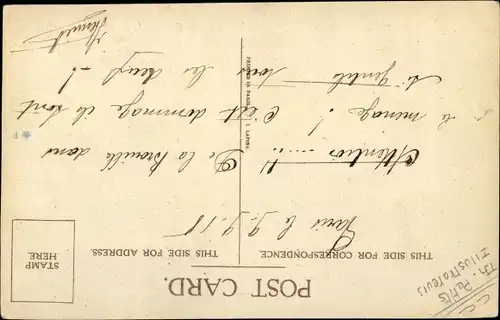 POST CARD.
THIS SIDE FOR CORRESPONDENCE.
THIS SIDE FOR ADDRESS.
STAMP
HERE.
PRINTED IN PARIS
I. LAPINA.
Paris le 9.9.18
Attention ......!!
De la Brouille dans
le minage! C'est dommage ils sont
si gentils tous les deux —!
Th.
Petits
Illustrateurs